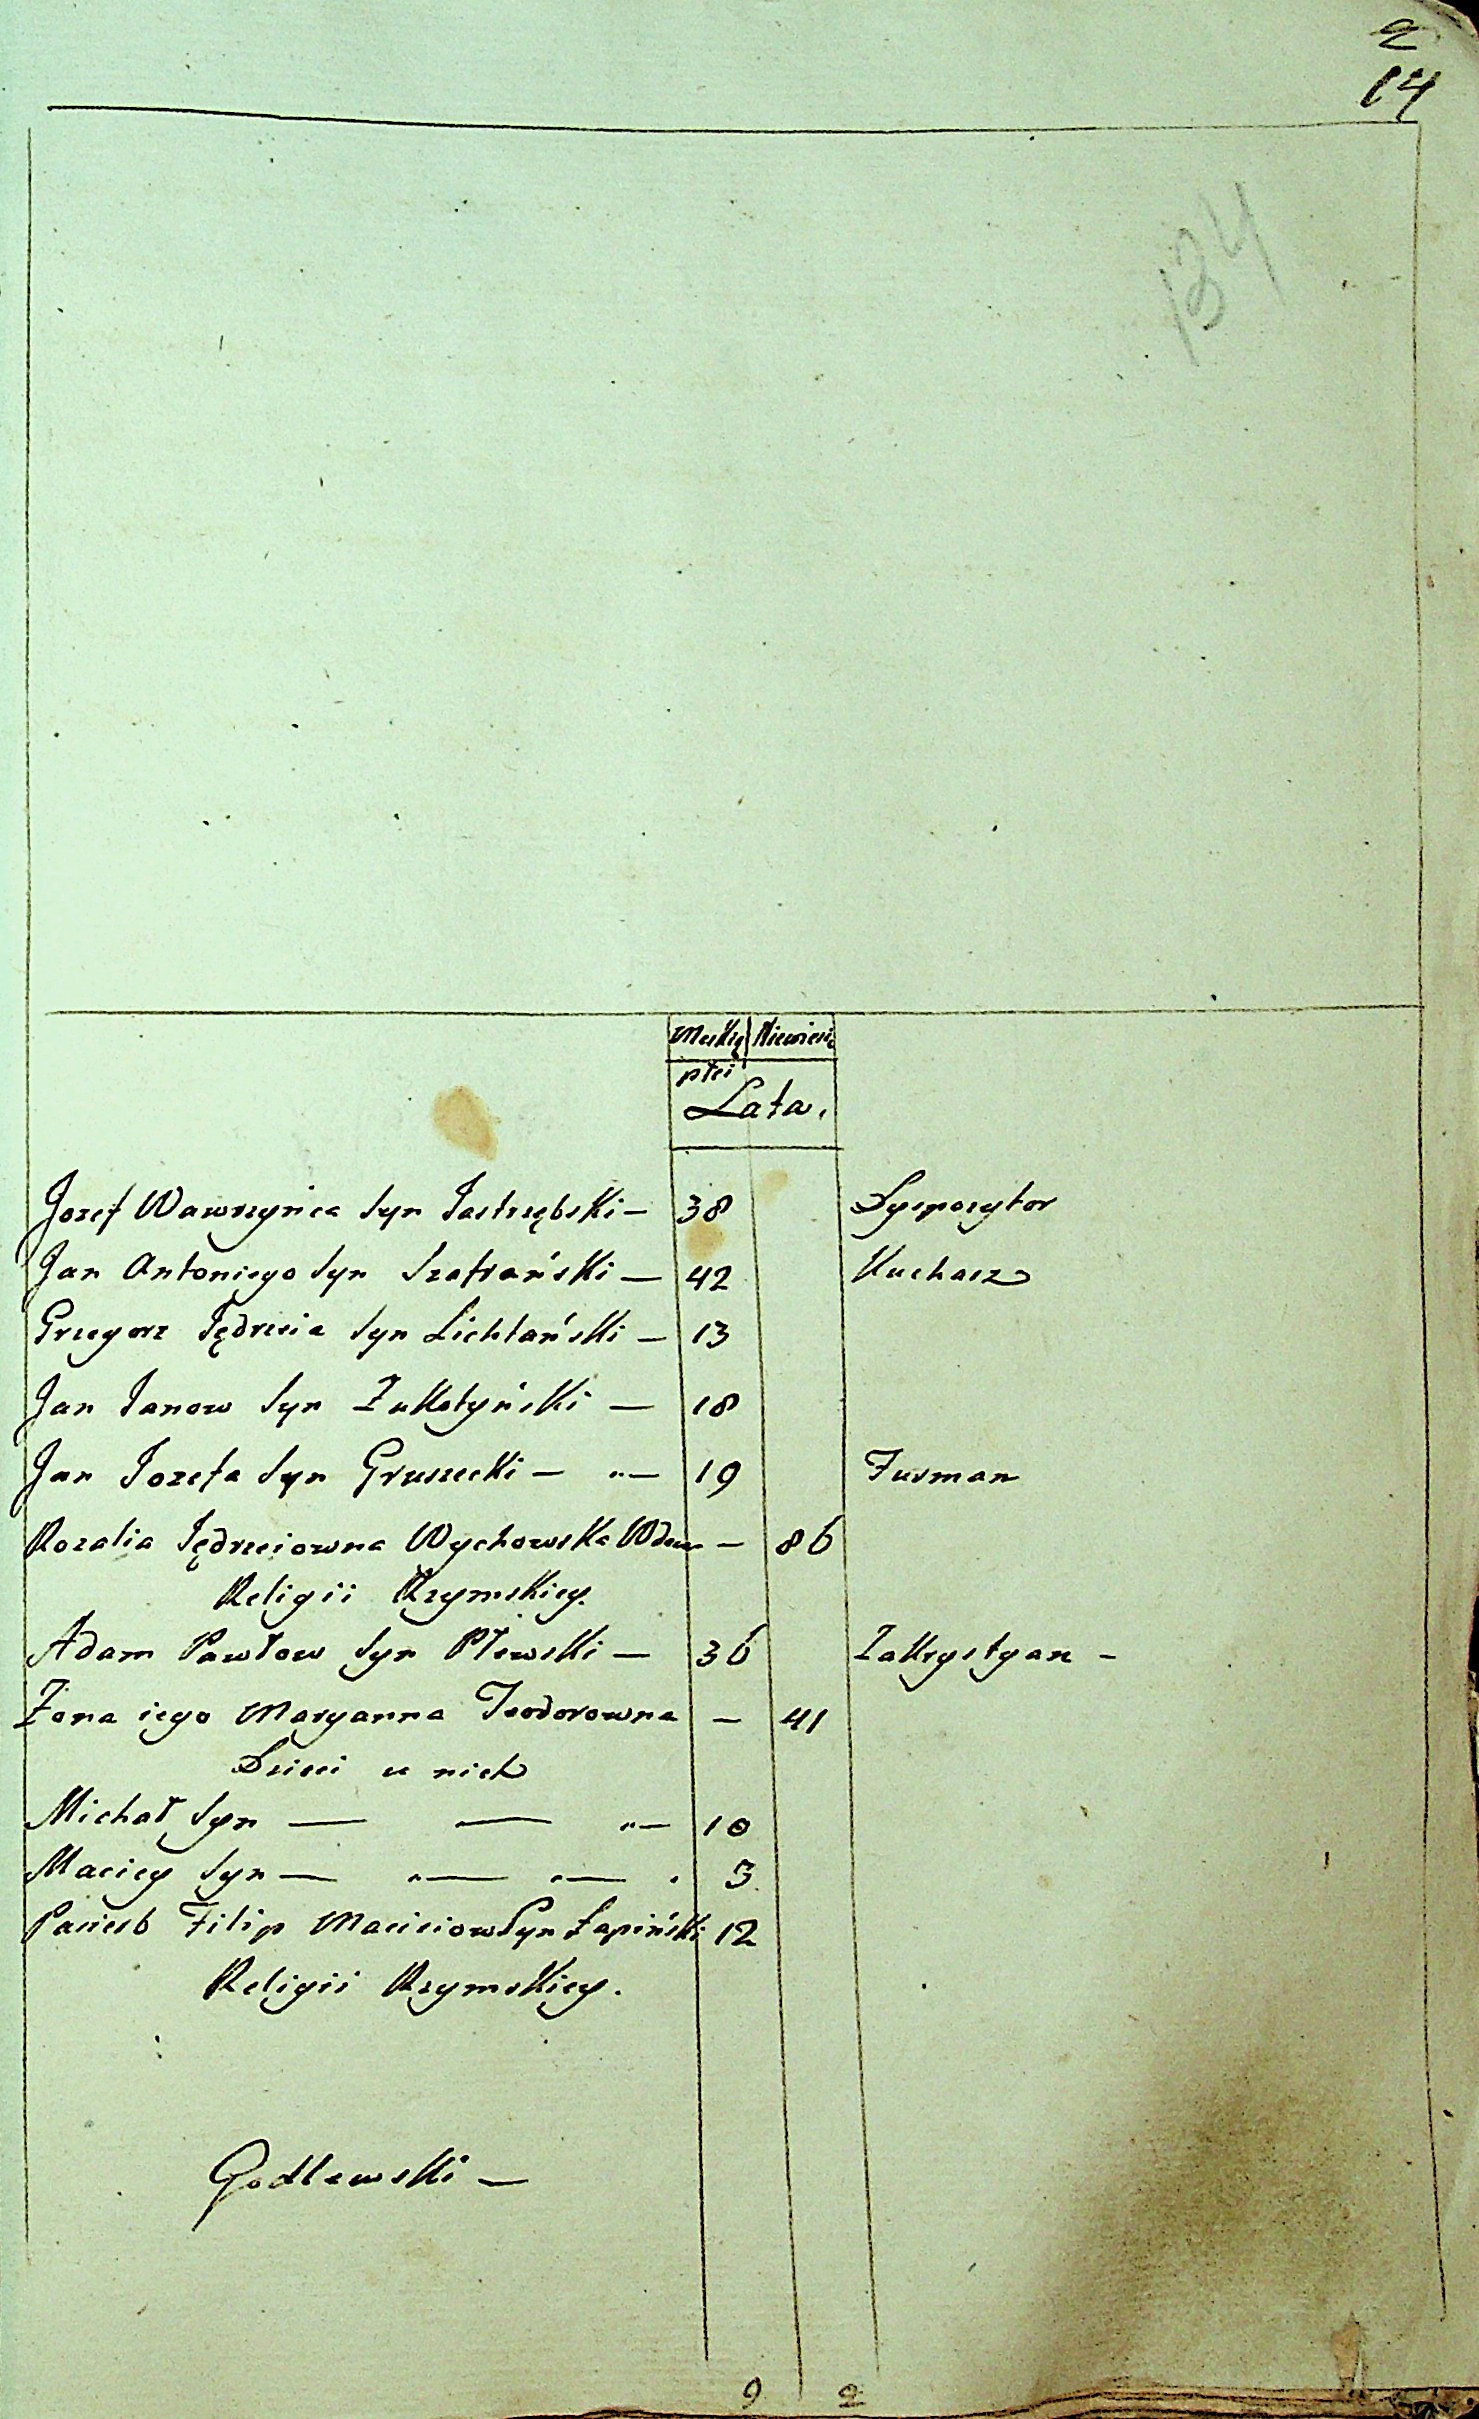 2
14
134
Męską Niewieścią
płci
Lata.
Jozef Wawrzynca Syn Jastrzębski — 38 Dyspozytor
Jan Antoniego Syn Szafrański — 42 Kucharz
Grzegorz Jędrzeia Syn Lichtański — 13
Jan Janow Syn Zukotyński — 18
Jan Jozefa Syn Gruszecki — „— 19 Furman
Rozalia Jędrzeiowna Wychowska Wdowa — 86
Religii Rzymskiey.
Adam Pawłow Syn Plewski — 36 Zakrystyan —
Żona iego Maryanna Teodorowna — 41
Dzieci u nich
Michał Syn — — „— 10
Maciey Syn — „— „— . 3
Pasierb Filip Macieiow Syn Łapiński 12
Religii Rzymskiey.
Godlewski —
9 2